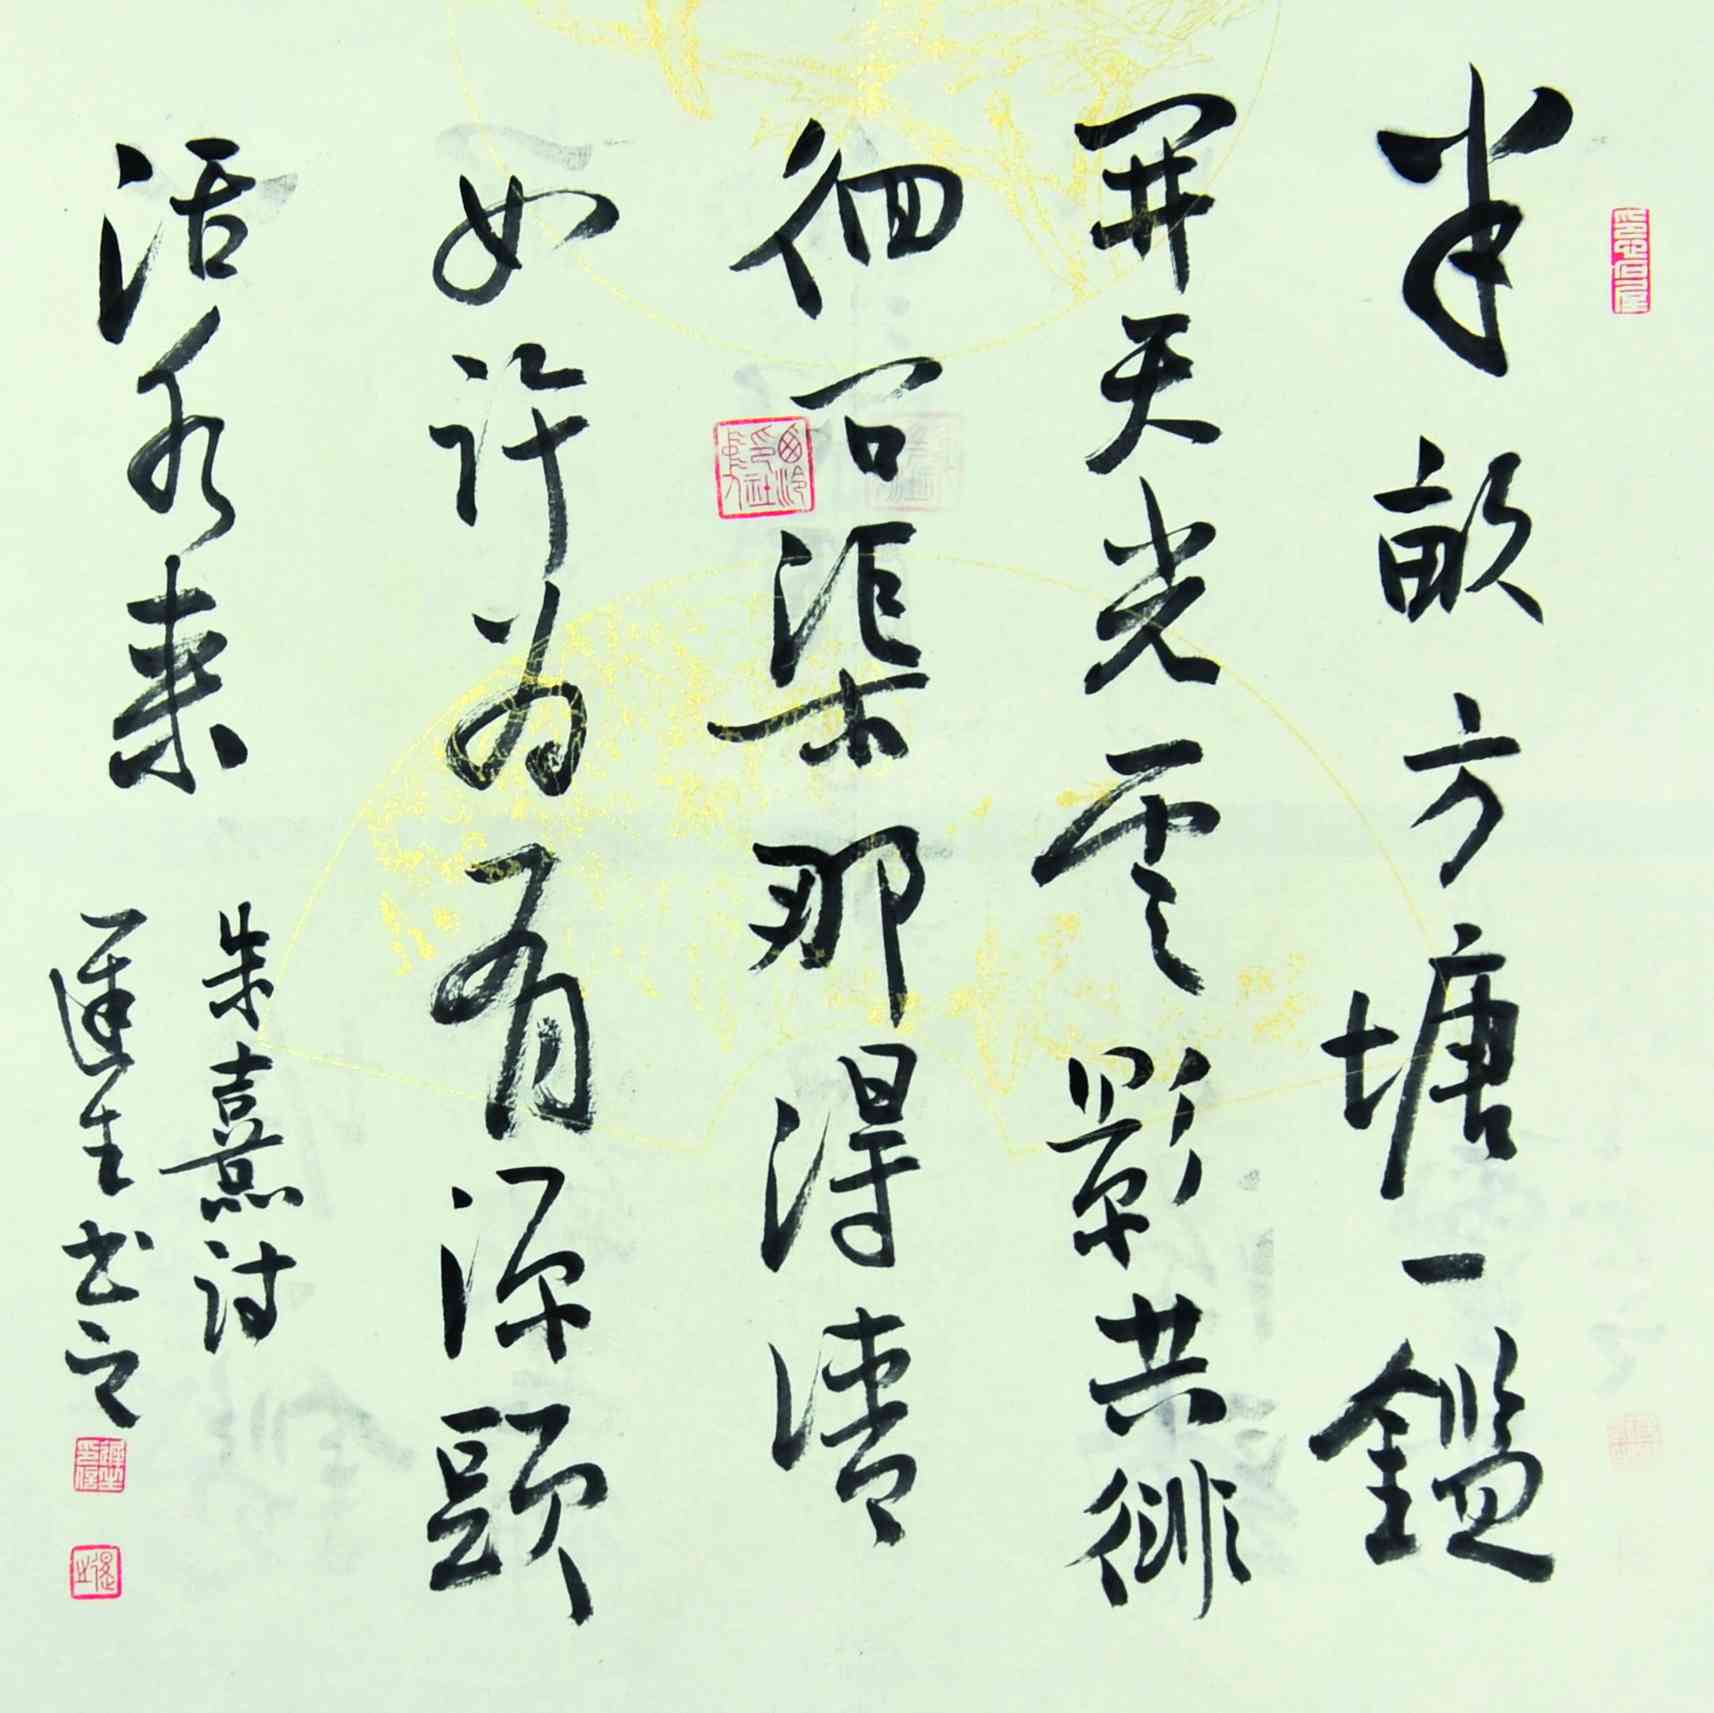 半畝方塘一鑑
開天光雲影共徘
徊問渠那得清
如許為有源頭
活水来
朱熹詩
運生书之